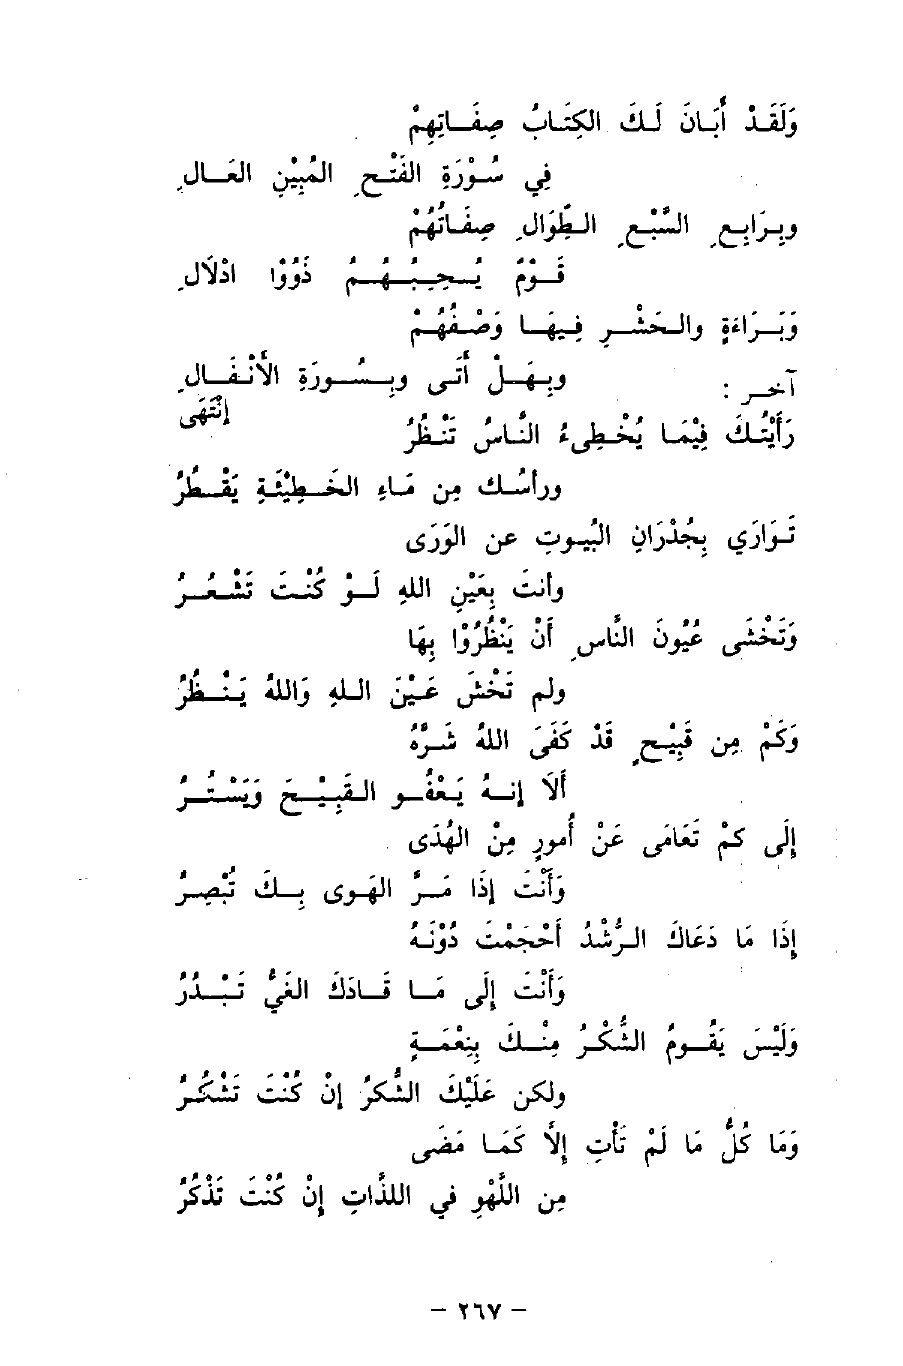 وَلَقَدْ أَبَانَ لَكَ الكِتَابُ صِفَاتِهِمْ
فِي سُوْرَةِ الفَتْحِ المُبِيْنِ العَالِ
وبِرَابِعِ السَّبْعِ الطِّوَالِ صِفَاتُهُمْ
قَوْمٌ يُحِبُّهُمُ ذَوُوْا ادْلَالِ
وَبَرَاءَةٍ والحَشْرِ فِيهَا وَصْفُهُمْ
وبِهَلْ أَتَى وبِسُورَةِ الأَنْفَالِ
إِنْتَهَى
آخر :
رَأَيْتُكَ فِيْمَا يُخْطِىءُ النَّاسُ تَنْظُرُ
ورأسُك مِن مَاءِ الخَطِيْئَةِ يَقْطُرُ
تَوَارَي بِجُدْرَانِ البُيوتِ عن الوَرَى
وأنتَ بِعَيْنِ اللهِ لَوْ كُنْتَ تَشْعُرُ
وَتَخْشَى عُيُونَ النَّاسِ أَنْ يَنْظُرُوْا بِهَا
ولم تَخْشَ عَيْنَ اللهِ وَاللهُ يَنْظُرُ
وَكَمْ مِن قَبِيْحٍ قَدْ كَفَىَ اللهُ شَرَّهُ
أَلَا إنهُ يَعْفُو القَبِيْحَ وَيَسْتُرُ
إِلَى كمْ تَعَامَى عَنْ أُمورٍ مِنْ الهُدَى
وَأَنْتَ إِذَا مَرَّ الهَوى بِكَ تُبْصِرُ
إِذَا مَا دَعَاكَ الرُّشْدُ أَحْجَمْتَ دُوْنَهُ
وَأَنْتَ إِلَى مَا قَادَكَ الغَيُّ تَبْدُرُ
وَلَيْسَ يَقُومُ الشُّكْرُ مِنْكَ بِنِعْمَةٍ
ولكن عَلَيْكَ الشُّكرُ إنْ كُنْتَ تَشْكُرُ
وَمَا كُلُّ مَا لَمْ تَأْتِ إِلاَّ كَمَا مَضَى
مِن اللَّهْوِ في اللذَّاتِ إِنْ كُنْتَ تَذْكُرُ
- ٢٦٧ -